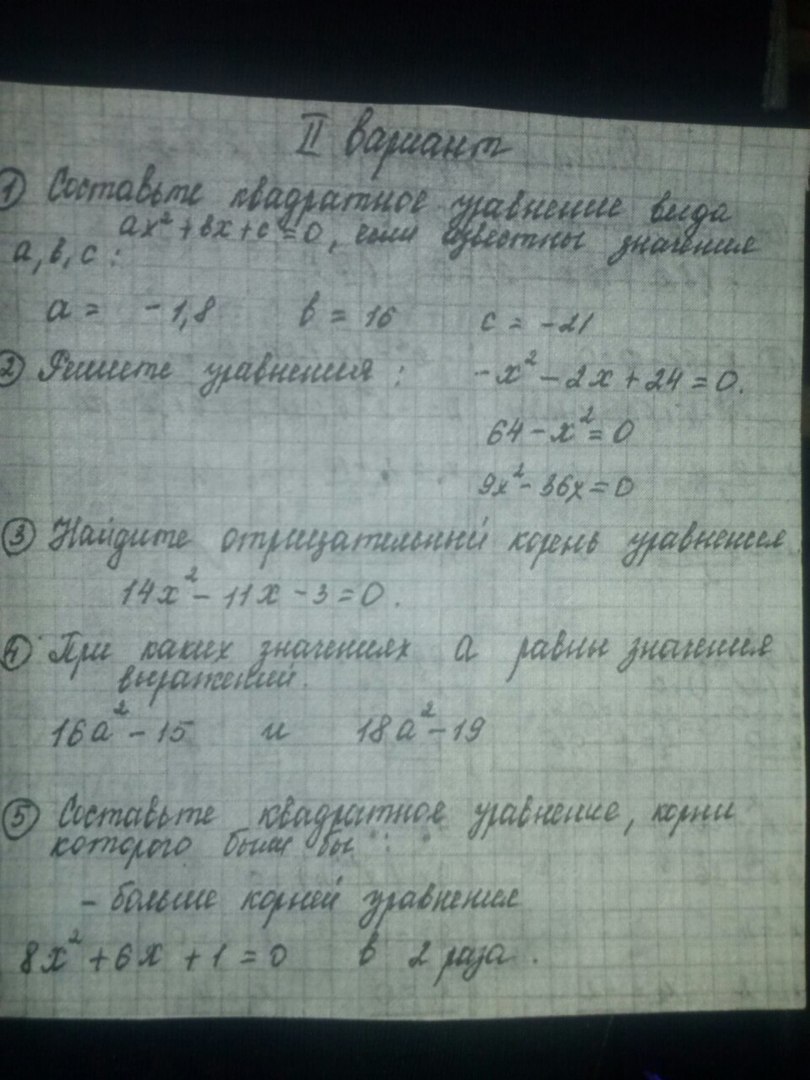 II вариант
① Составьте квадратное уравнение вида
ax² + bx + c = 0, если известны значения
a, b, c:
a = -1,8 b = 16 c = -21
② Решите уравнения: -x² - 2x + 24 = 0.
64 - x² = 0
9x² - 36x = 0
③ Найдите отрицательный корень уравнения
14x² - 11x - 3 = 0.
④ При каких значениях a равны значения
выражений.
16a² - 15 и 18a² - 19
⑤ Составьте квадратное уравнение, корни
которого были бы:
- больше корней уравнения
8x² + 6x + 1 = 0 в 2 раза.